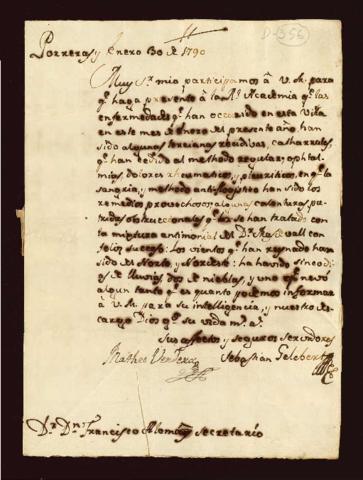 D-356
Porreras y Enero 30 de 1790
Muy Sr mio participamos â V.M. para
q.e haga prevente â la Rl Academia q.e las
enfermedades q.e han occurido en esta Villa
en este mes de Enero del presente año, han
sido algunas tercianas recidivas, catharrales,
q.e han cedido al methodo regular; ophtal-
mias, dolores rheumaticos, y pleuriticos, en q.e la
sangria, y methodo antiflogistico han sido los
remedios provechosos, algunas calenturas pu-
tridas obstruccionales q.e se han tratado con
la mixtura antimonial del Dr Masdevall con
feliz sucesso: Los vientos q.e han reynado han
sido del Norte, y Nordeste: ha havido sinco di-
as de lluvias, dos de nieblas, y uno q.e nevó
algun tanto q.e es quanto podemos informar
â V.M. para su inteligencia, y nuestro de-
cargo Dios g.e su vida m.s a.s
Sus affectos y seguros servidores
Matheo Verdera Sebastian Gelebert
Dr Dn Francisco Alemañ secretario